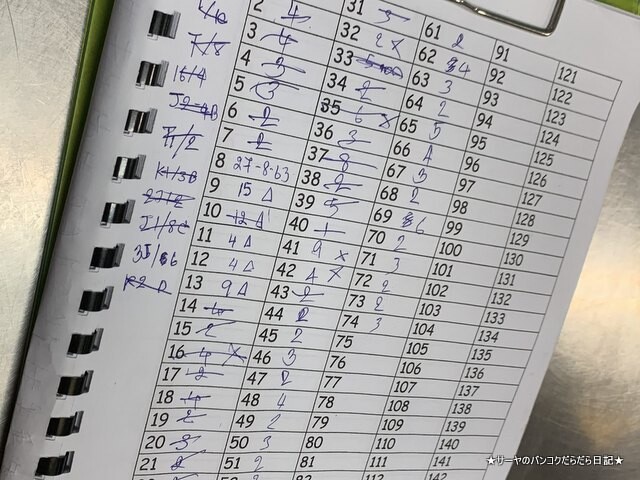 2 4 31 3 61 2 91 121
3 4 32 2 X 62 4 92 122
4 3 33 63 3 93 123
5 3 34 2 64 2 94 124
6 2 35 6 X 65 5 95 125
7 2 36 3 66 4 96 126
8 27-8-63 37 8 67 3 97 127
9 15 Δ 38 2 68 2 98 128
10 12 Δ 39 5 69 6 99 129
11 4 Δ 40 1 70 2 100 130
12 4 Δ 41 9 X 71 3 101 131
13 9 Δ 42 4 X 72 2 102 132
14 4 43 2 73 2 103 133
15 2 44 2 74 3 104 134
16 4 X 45 2 75 105 135
17 2 46 3 76 106 136
18 4 47 2 77 107 137
19 2 48 4 78 108 138
20 3 49 2 79 109 139
21 2 50 3 80 110 140
51 2 81 111 141
142
7/8
16/4
★サーヤのバンコクだらだら日記★